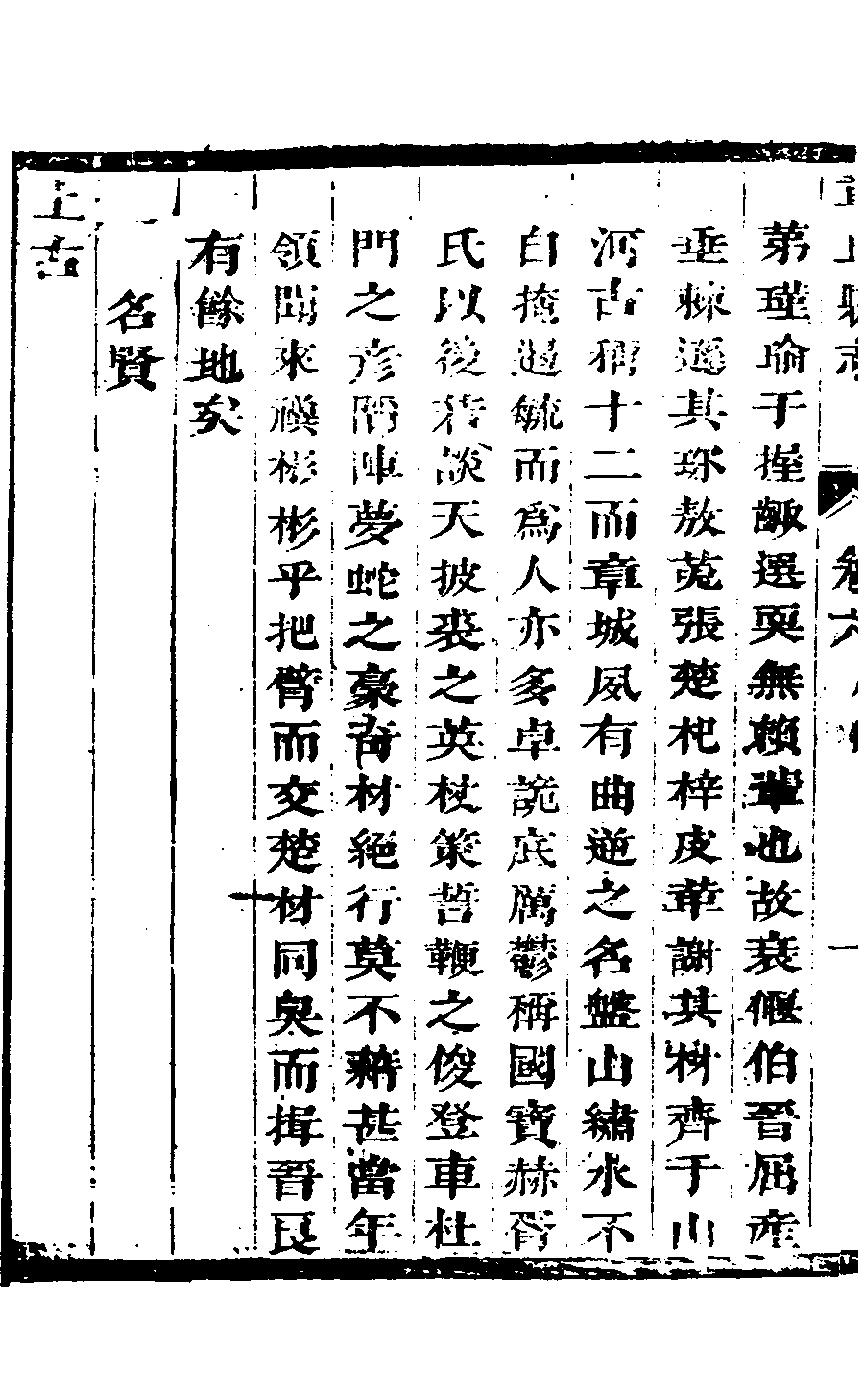 章丘縣志 卷六 一
第瑾瑜于握齱選耎無賴輩也故衰偃伯晉屈產
垂棘遜其珎敖蒐張楚杞梓皮革謝其材齊于山
河古稱十二而章城夙有曲逆之名盤山繡水不
白掩過毓而為人亦多卓詭底厲鬱稱國寶赫胥
氏以後若談天披裘之英杖策哲鞭之俊登車杜
門之彥陷陣夢蛇之豪奇材絕行莫不藉甚當年
領聞來禩彬彬乎把臂而交楚材同臭而揖吾良
有餘地矣
名賢
上古